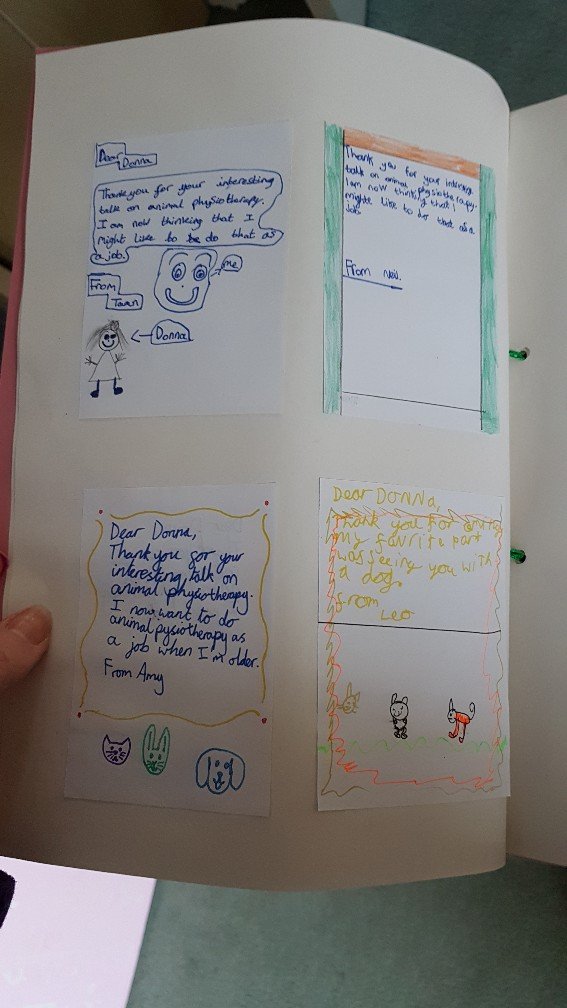 Dear
Donna
Thankyou for your interesting
talk on animal physiotherapy.
I am now thinking that I
might like to be do that as
a job.
me
From
Donna
Thank you for your intersting
talk on animal physiotherapy.
I am now thinking that I
mighte like to do that as a
job
From
Dear Donna,
Thankyou for your
interesting talk on
animal physiotherapy.
I now want to do
animal pysiotherapy as
a job when I'm older.
From Amy
Dear Donna,
Thank you for
my favrite part
was seeing you with
a dog.
from
Leo